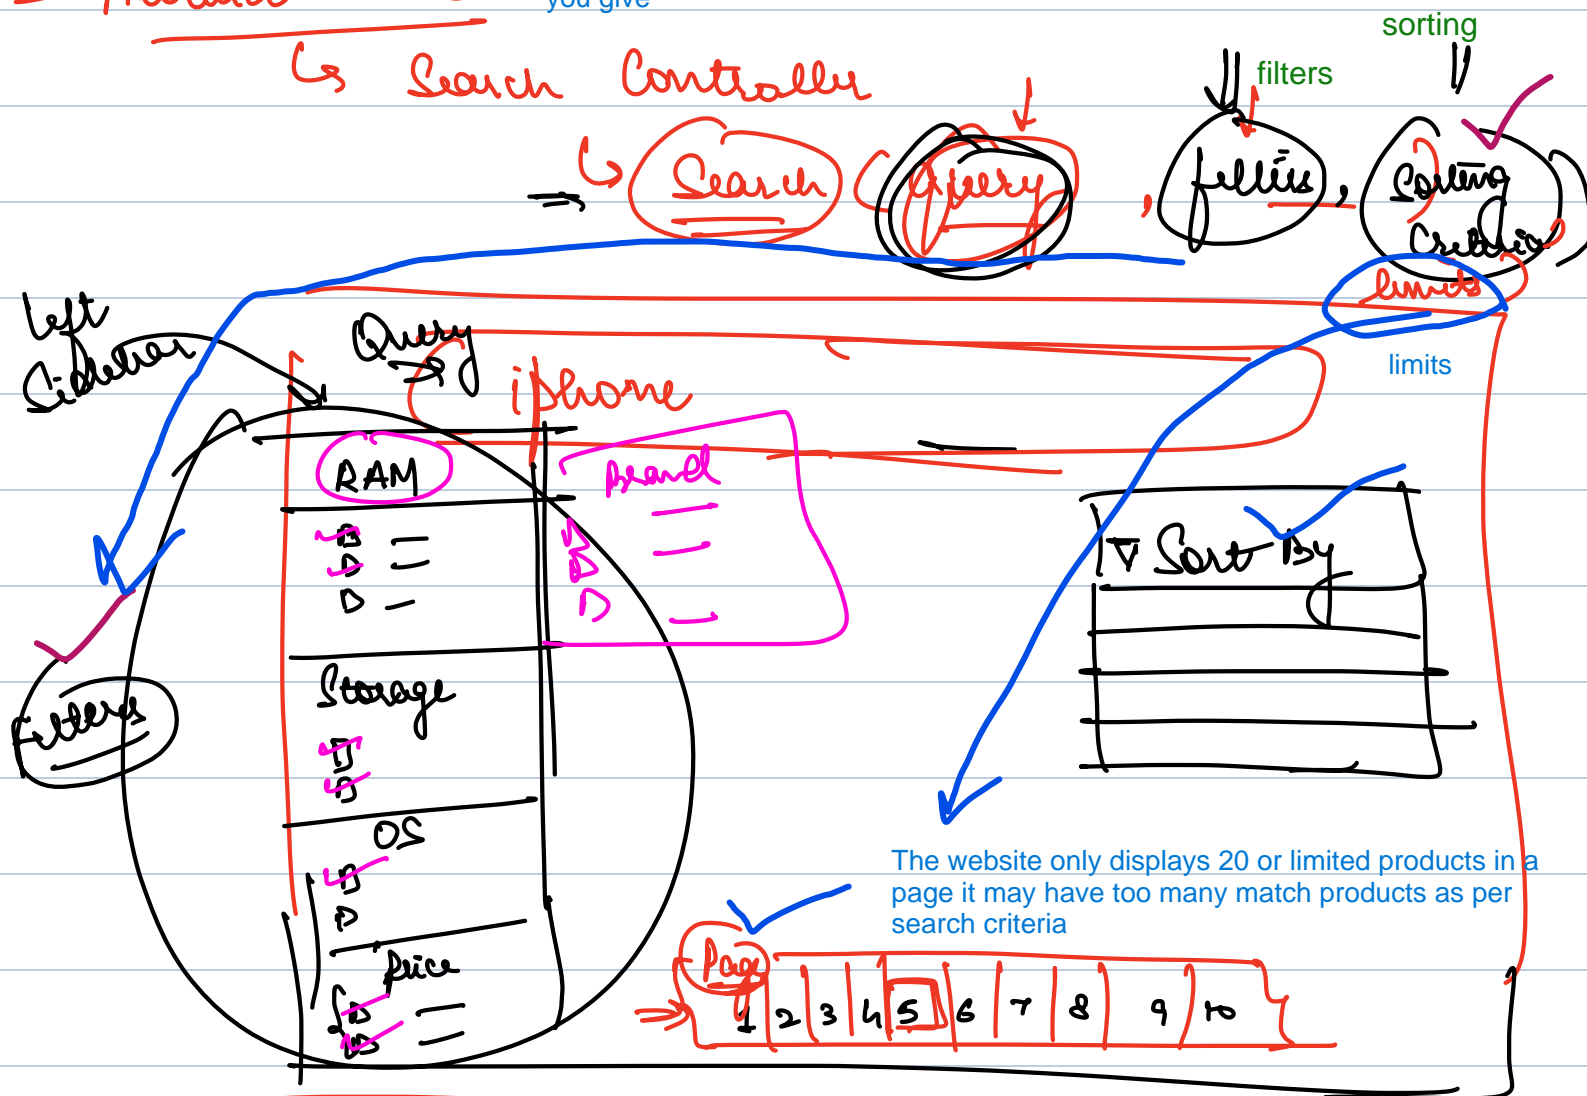 you give
sorting
filters
Search Controller
Search (Query, filters, Sorting
Criteria
limits)
limits
Left
Sidebar
Query
iphone
RAM
Brand
Sort By
Storage
Filters
OS
Price
The website only displays 20 or limited products in a
page it may have too many match products as per
search criteria
Page
1 2 3 4 5 6 7 8 9 10